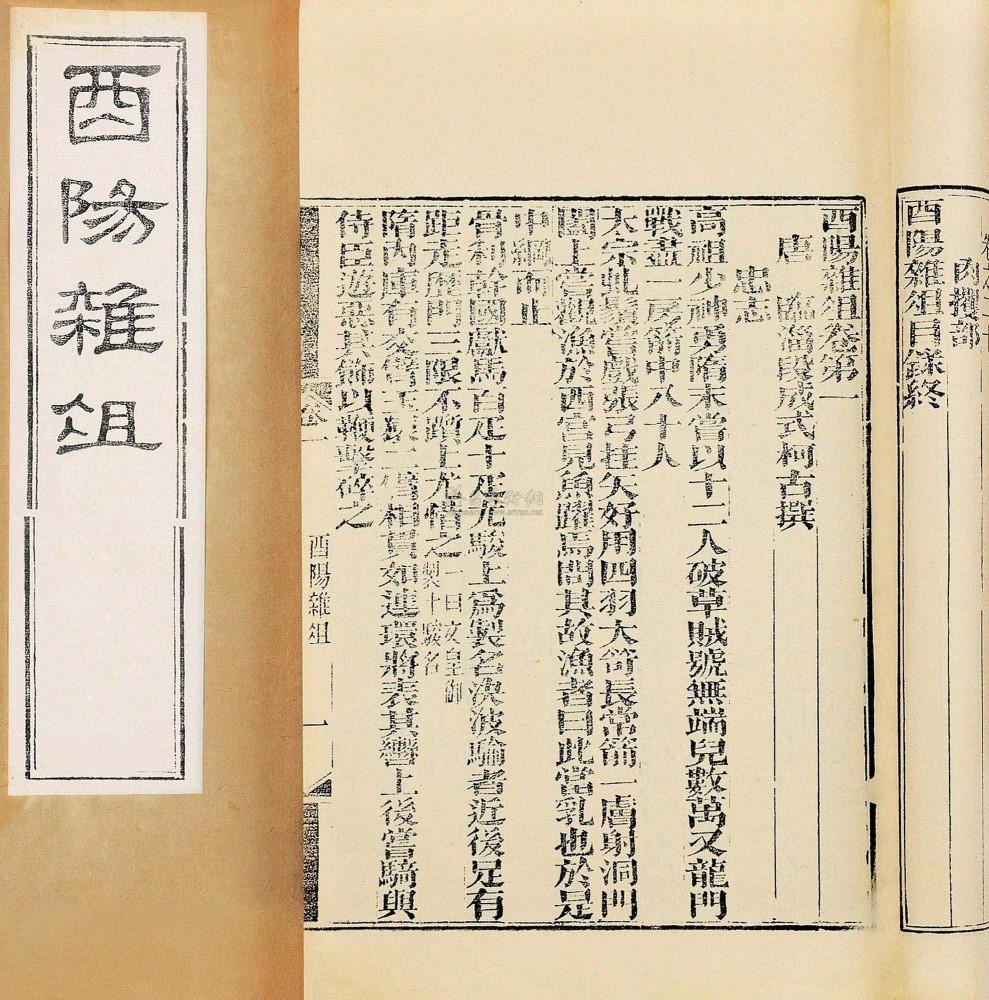 酉陽雜俎
肉攫部
酉陽雜俎目錄終
酉陽雜俎卷第一
唐 臨淄段成式柯古撰
忠志
高祖少神勇隋末嘗以十二人破草賊號無端兒數萬又龍門
戰盡一房箭中八十人
太宗虬鬚嘗戲張弓挂矢好用四羽大笴長常箭一膚射洞門
闔上嘗觀漁於西宮見魚躍焉問其故漁者曰此當乳也於是
中網而止
骨利幹國獻馬百疋十疋尤駿上爲製名決波騟者近後足有
距走歷門三限不躓上尤惜之一曰文皇御製十驥名
隋內庫有交臂玉猨二臂相貫如連環將表其轡上後嘗騎與
侍臣遊惡其飾以鞭擊碎之
卷一 酉陽雜俎 一